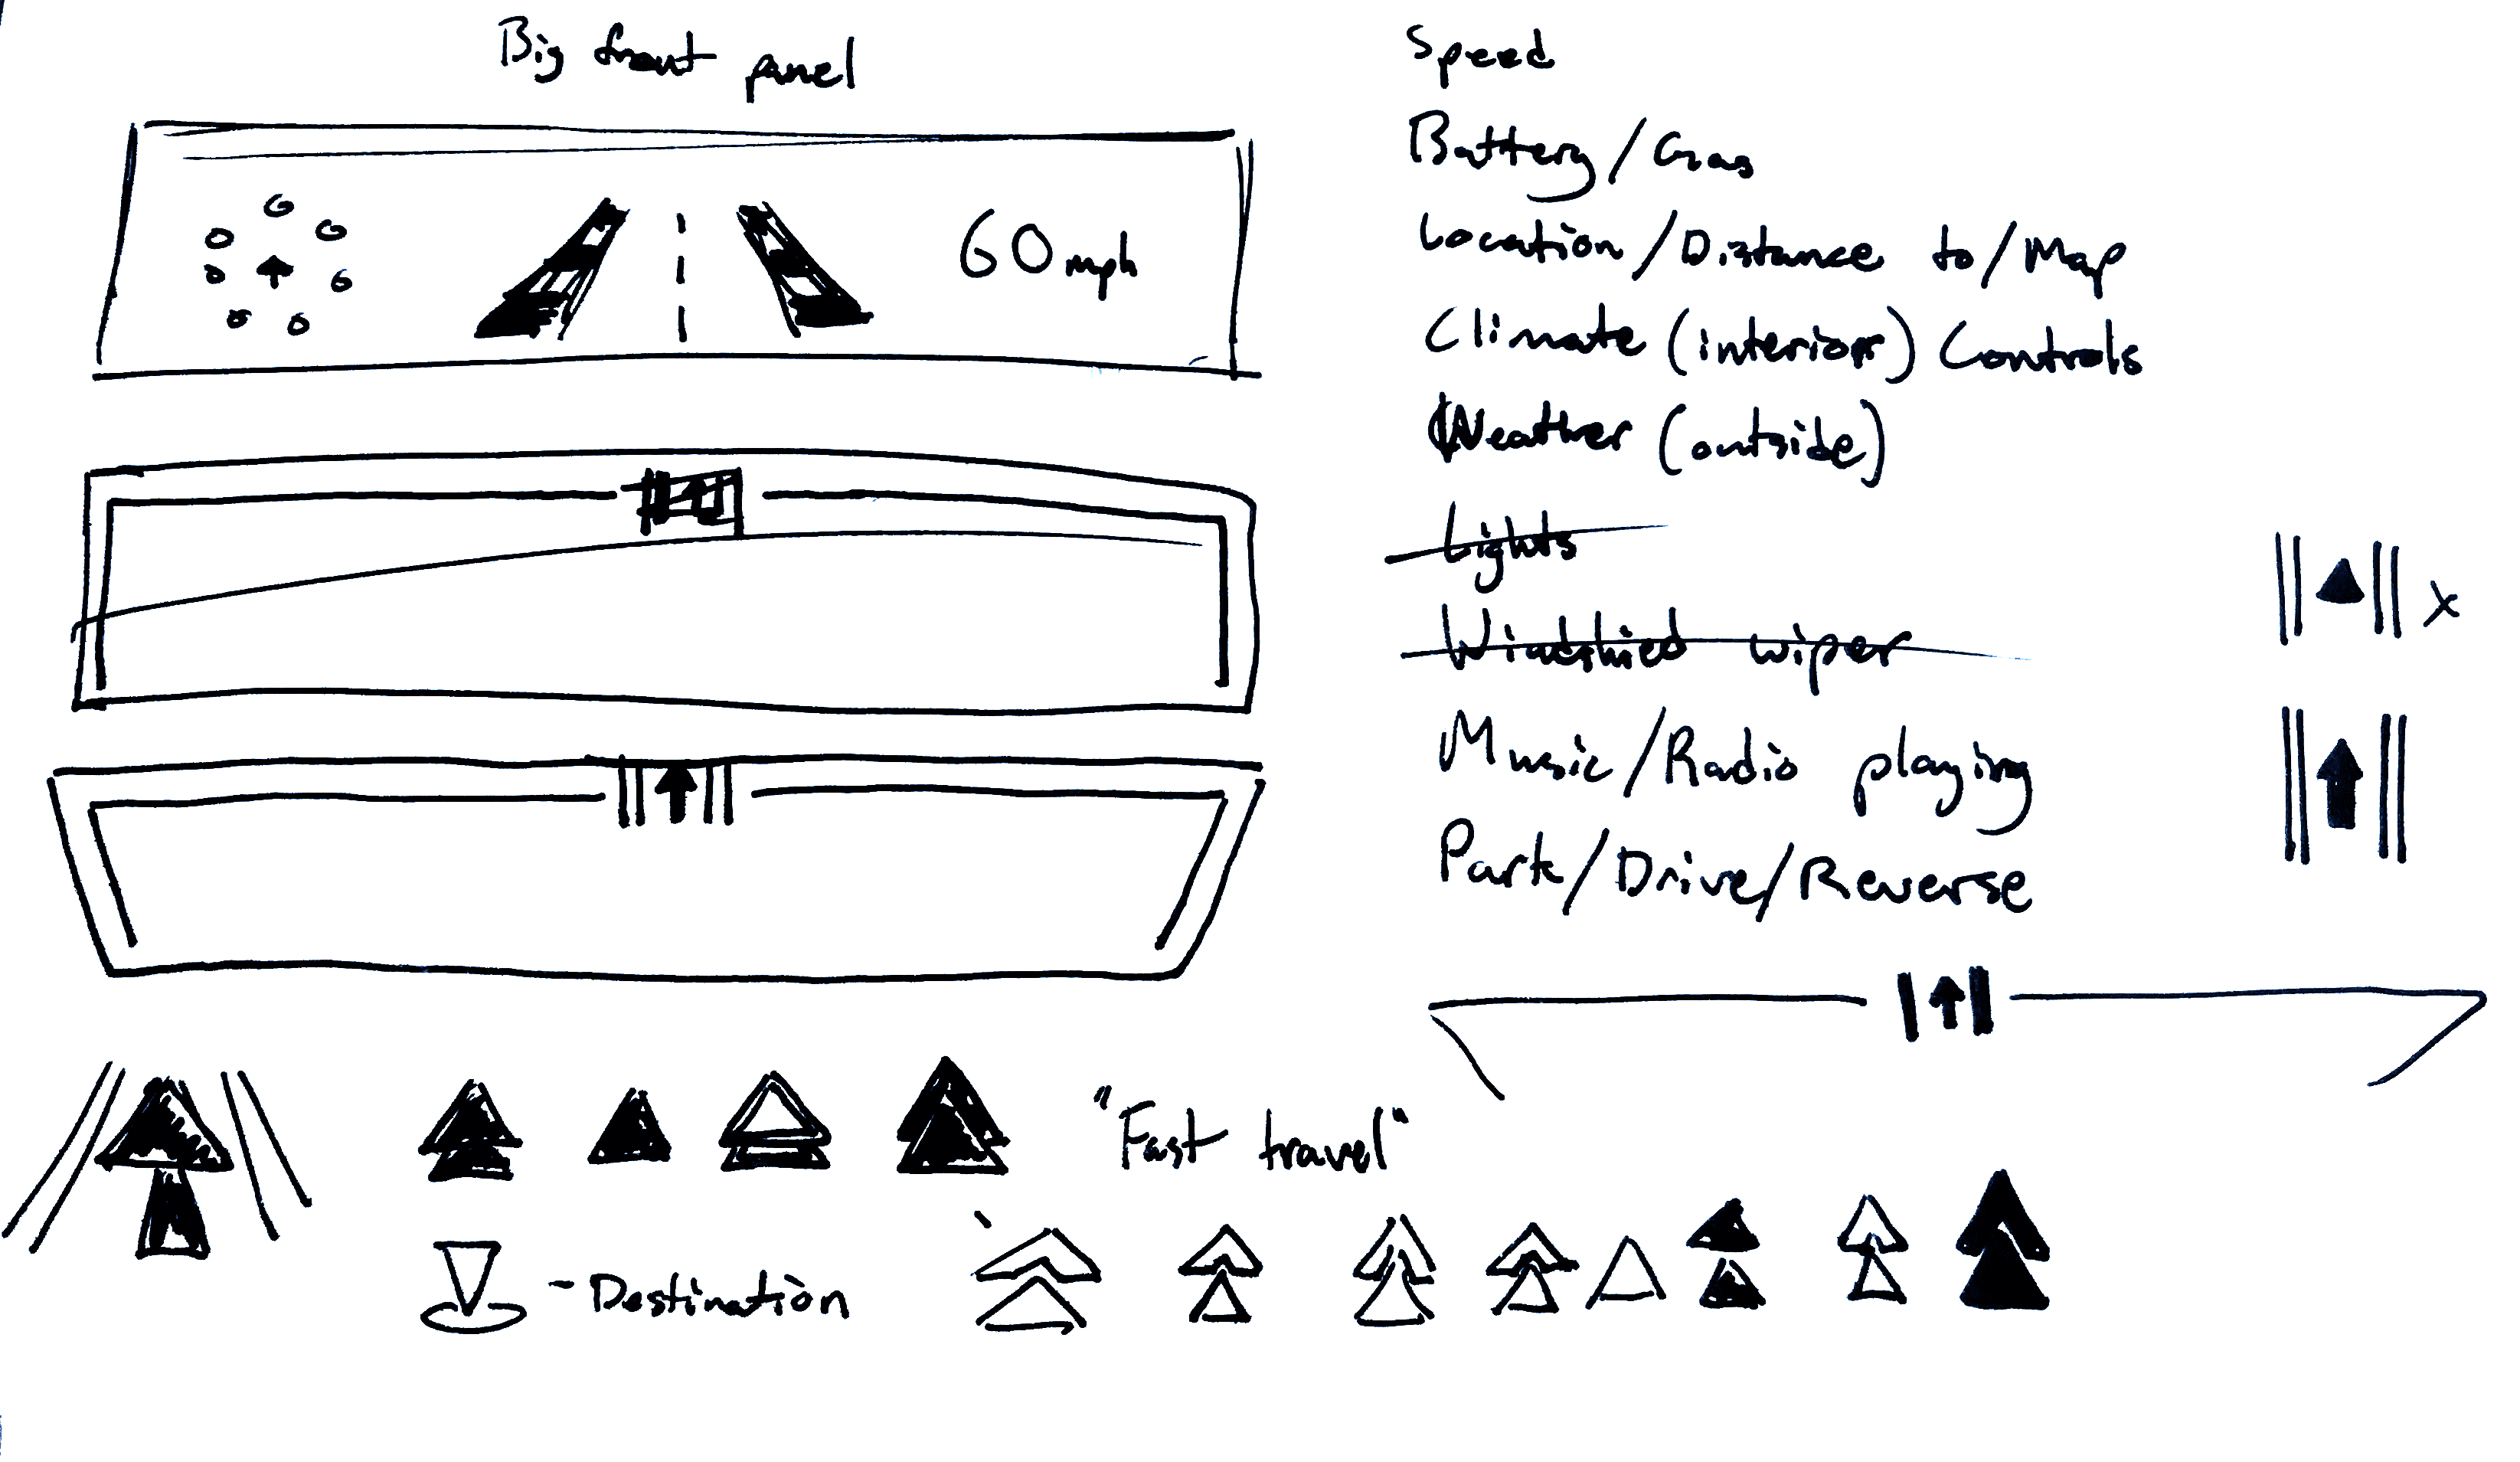 Big front panel
60 mph
Speed
Battery/Gas
Location/Distance to/Map
Climate (interior) Controls
Weather (outside)
Lights
Windshied wiper
Music/Radio playing
Park/Drive/Reverse
x
"Fast travel"
- Destination